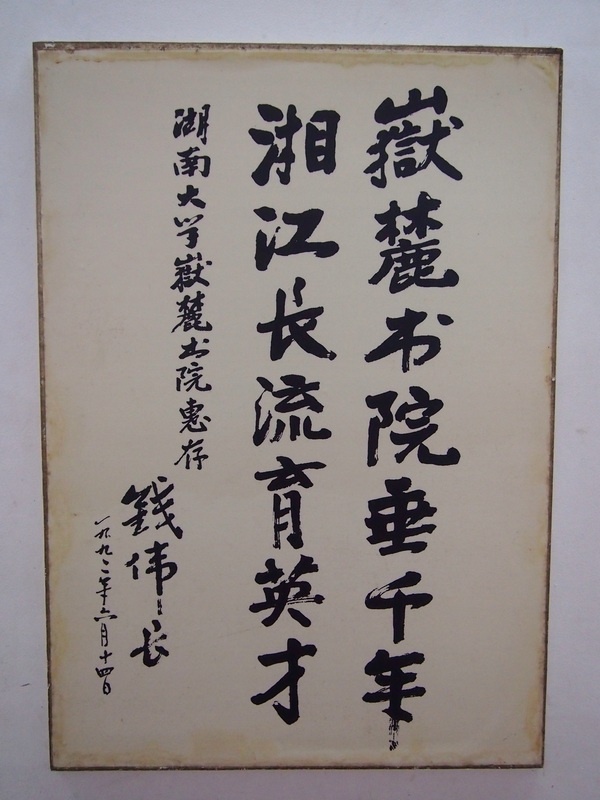 嶽麓书院垂千年
湘江长流育英才
湖南大学嶽麓书院惠存
錢伟长
一九九二年六月十四日